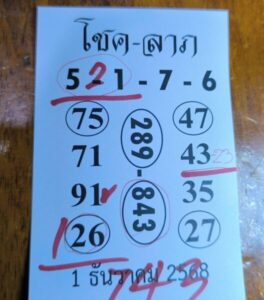 โชค-ลาภ
5 2 1 - 7 - 6
75 47
71 289-843 43 23
91 35
1 26 27
1 ธันวาคม 2568
743